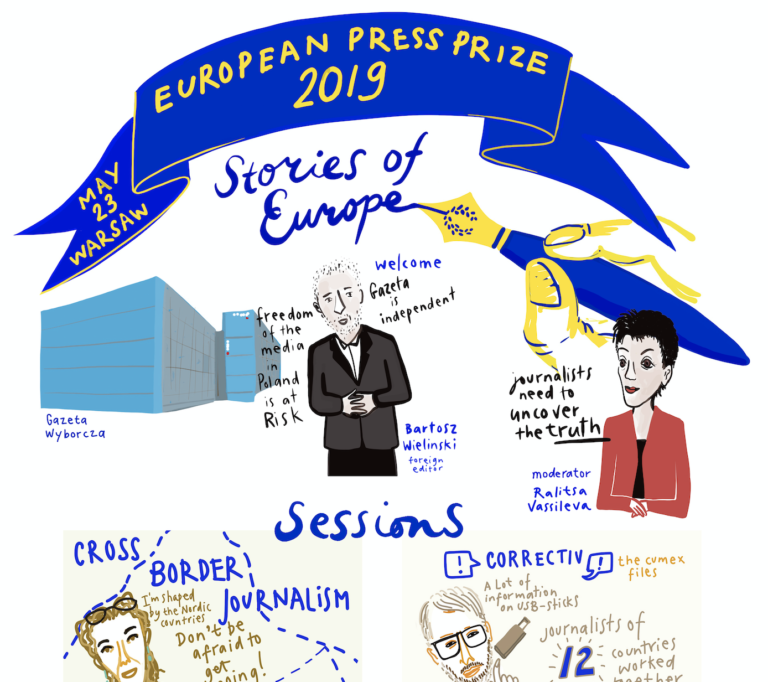 EUROPEAN PRESS PRIZE
2019
MAY
23
WARSAW
Stories of
Europe
welcome
Gazeta
is
independent
freedom
of the
media
in
Poland
is at
Risk
Gazeta
Wyborcza
Bartosz
Wielinski
foreign
editor
journalists
need to
uncover
the truth
moderator
Ralitsa
Vassileva
Sessions
CROSS
BORDER
JOURNALISM
I'm shaped
by the Nordic
countries
Don't be
afraid to
get
! CORRECTIV !
the cumex
files
A Lot of
information
on USB-sticks
journalists of
12
countries
worked
together